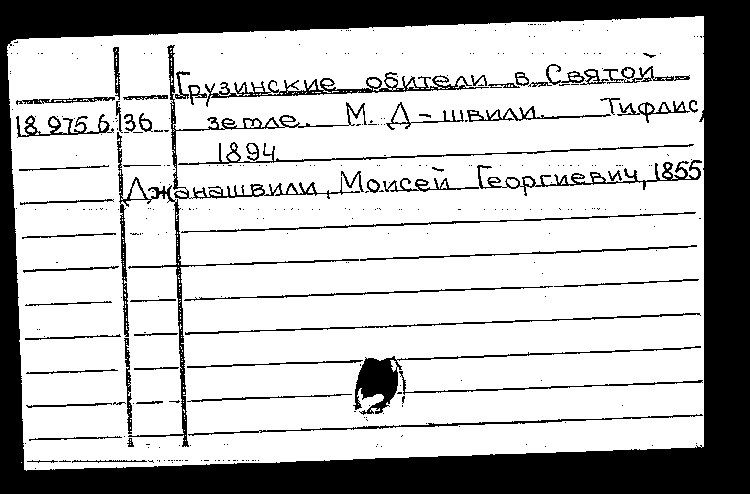 Грузинские обители в Святой
18.975.6.36 земле. М. Д-швили. Тифлис,
1894.
Джанашвили, Моисей Георгиевич, 1855-